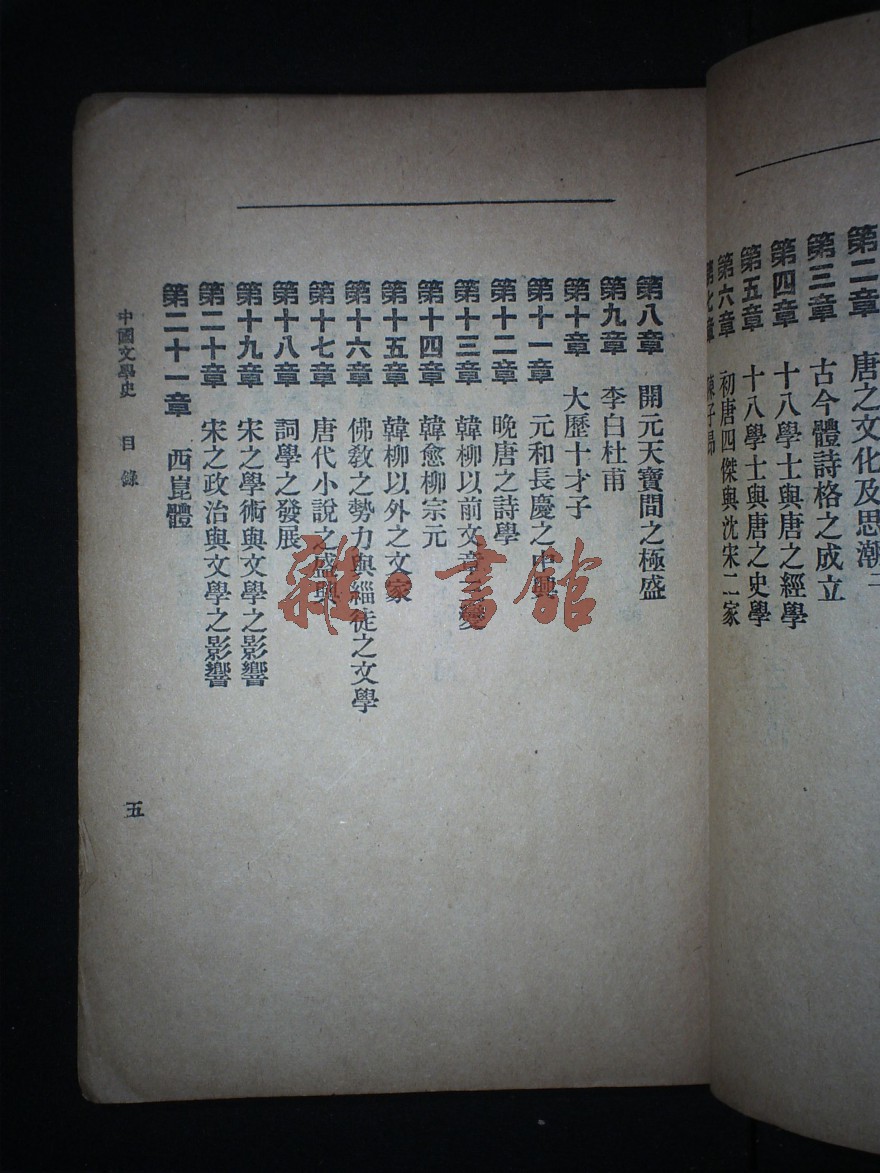 第二章 唐之文化及思潮
第三章 古今體詩格之成立
第四章 十八學士與唐之經學
第五章 十八學士與唐之史學
第六章 初唐四傑與沈宋二家
第七章 陳子昂
第八章 開元天寶間之極盛
第九章 李白杜甫
第十章 大歷十才子
第十一章 元和長慶之中興
第十二章 晚唐之詩學
第十三章 韓柳以前文章三變
第十四章 韓愈柳宗元
第十五章 韓柳以外之文家
第十六章 佛敎之勢力與緇徒之文學
第十七章 唐代小說之盛興
第十八章 詞學之發展
第十九章 宋之學術與文學之影響
第二十章 宋之政治與文學之影響
第二十一章 西崑體
中國文學史 目錄
五
雜·書館